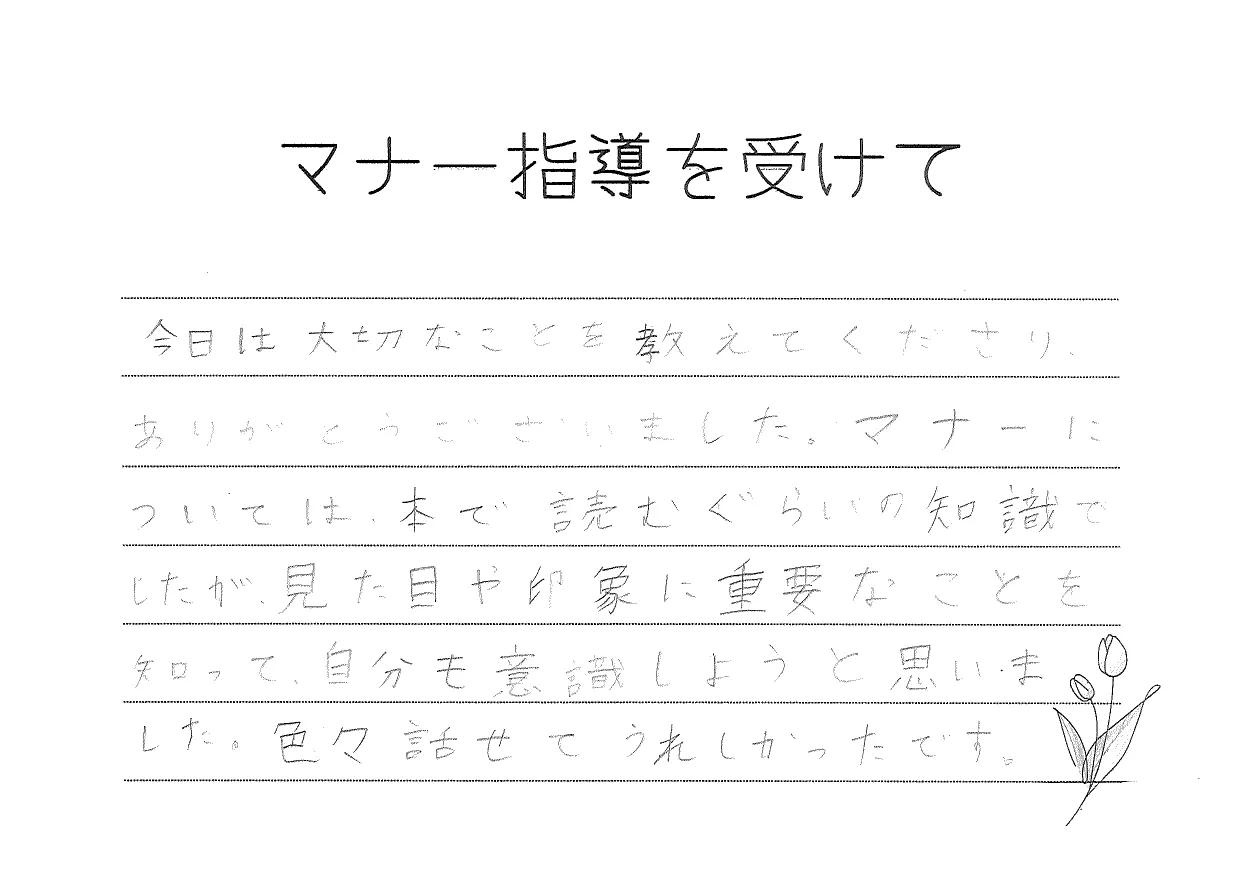 マナー指導を受けて
今日は大切なことを教えてくださり、
ありがとうございました。マナーに
ついては、本で読むぐらいの知識で
したが、見た目や印象に重要なことを
知って、自分も意識しようと思いま
した。色々話せてうれしかったです。